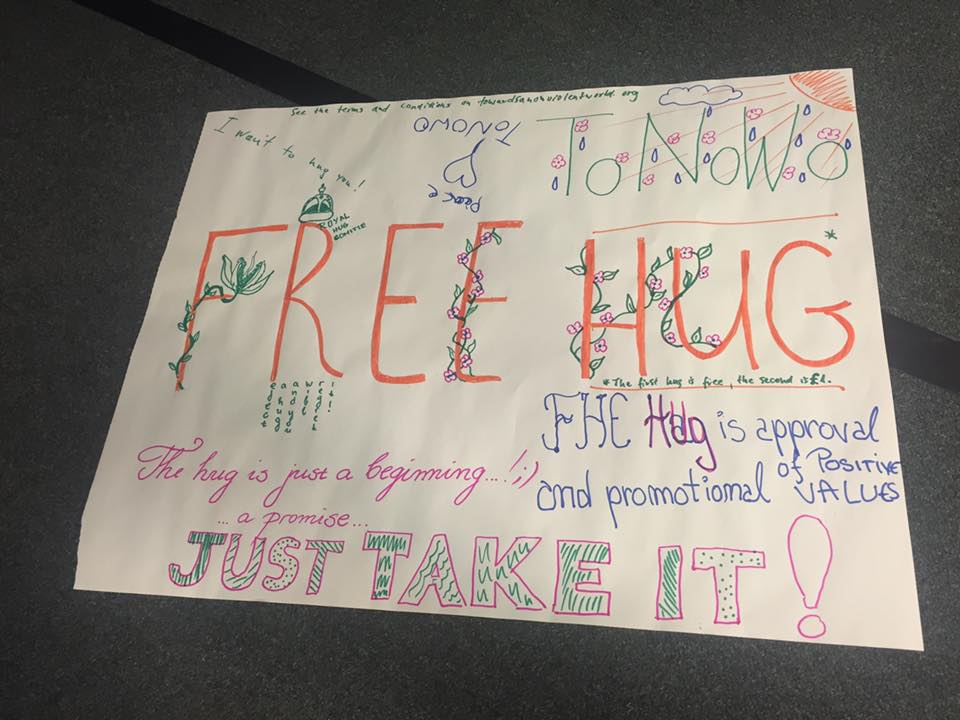 See the terms and conditions on towardsanonviolentworld.org
I want to hug you!
ToNoWo
Peace
ToNoWo
ROYAL
HUG
FREE HUG*
*The first hug is free, the second is £1.
FHE Hug is approval
and promotional of POSITIVE
VALUES
The hug is just a beginning...!;)
... a promise...
JUST TAKE IT!